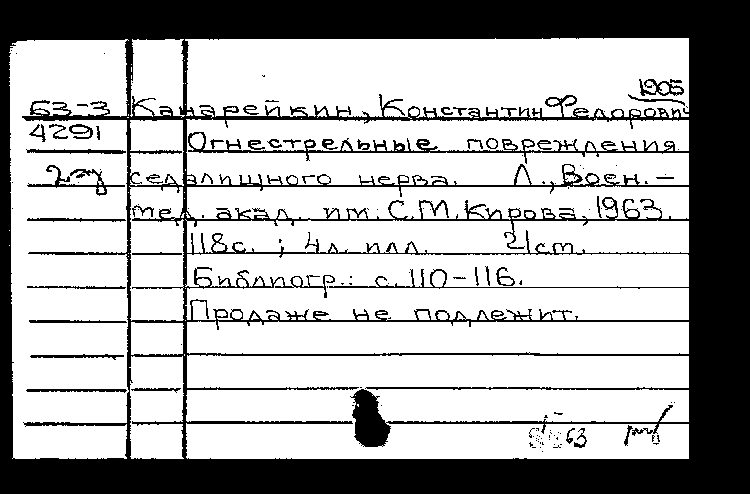 1905
63-3 Канарейкин, Константин Федорович
4291 Огнестрельные повреждения
седалищного нерва. Л., Воен.-
мед. акад. им. С.М.Кирова, 1963.
118с. ; 4л. илл. 21cm.
Библиогр.: с. 110-116.
Продаже не подлежит.
63